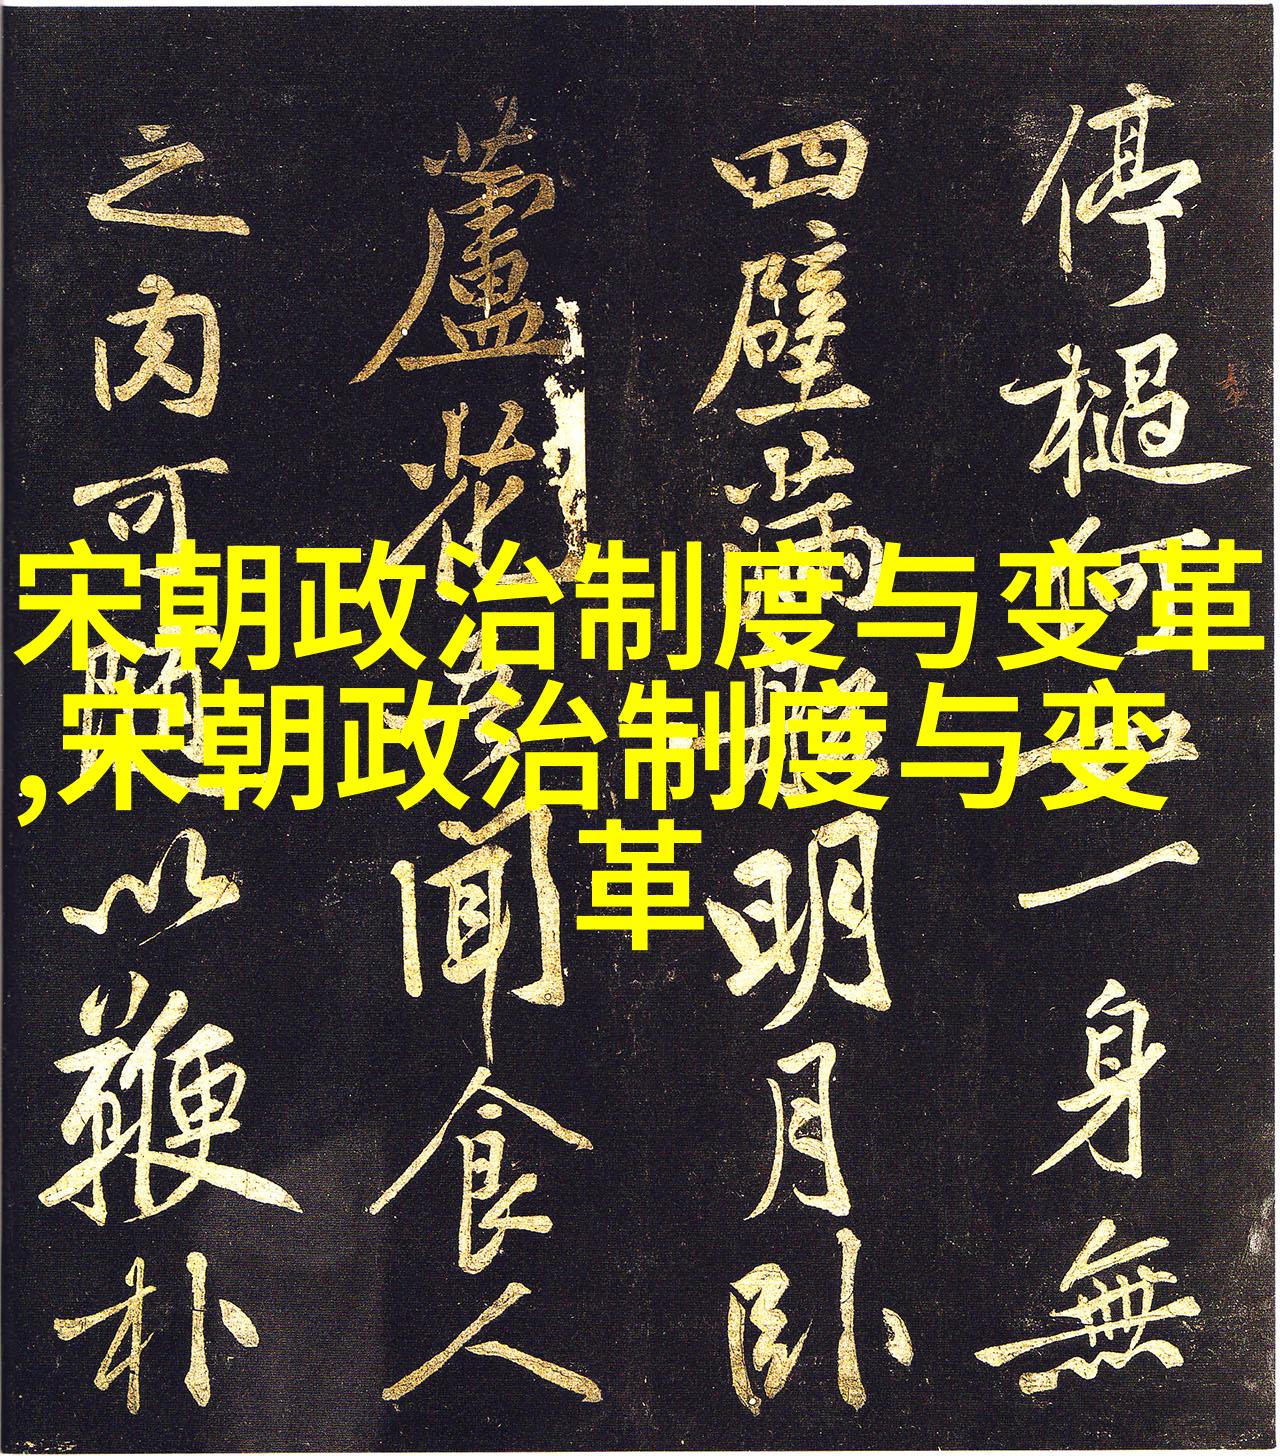 停檛何一身無
四壁滿船明月卧
蘆花吾聞食人
之肉可隨以鞭朴
宋朝政治制度与变革
,宋朝政治制度与变
革